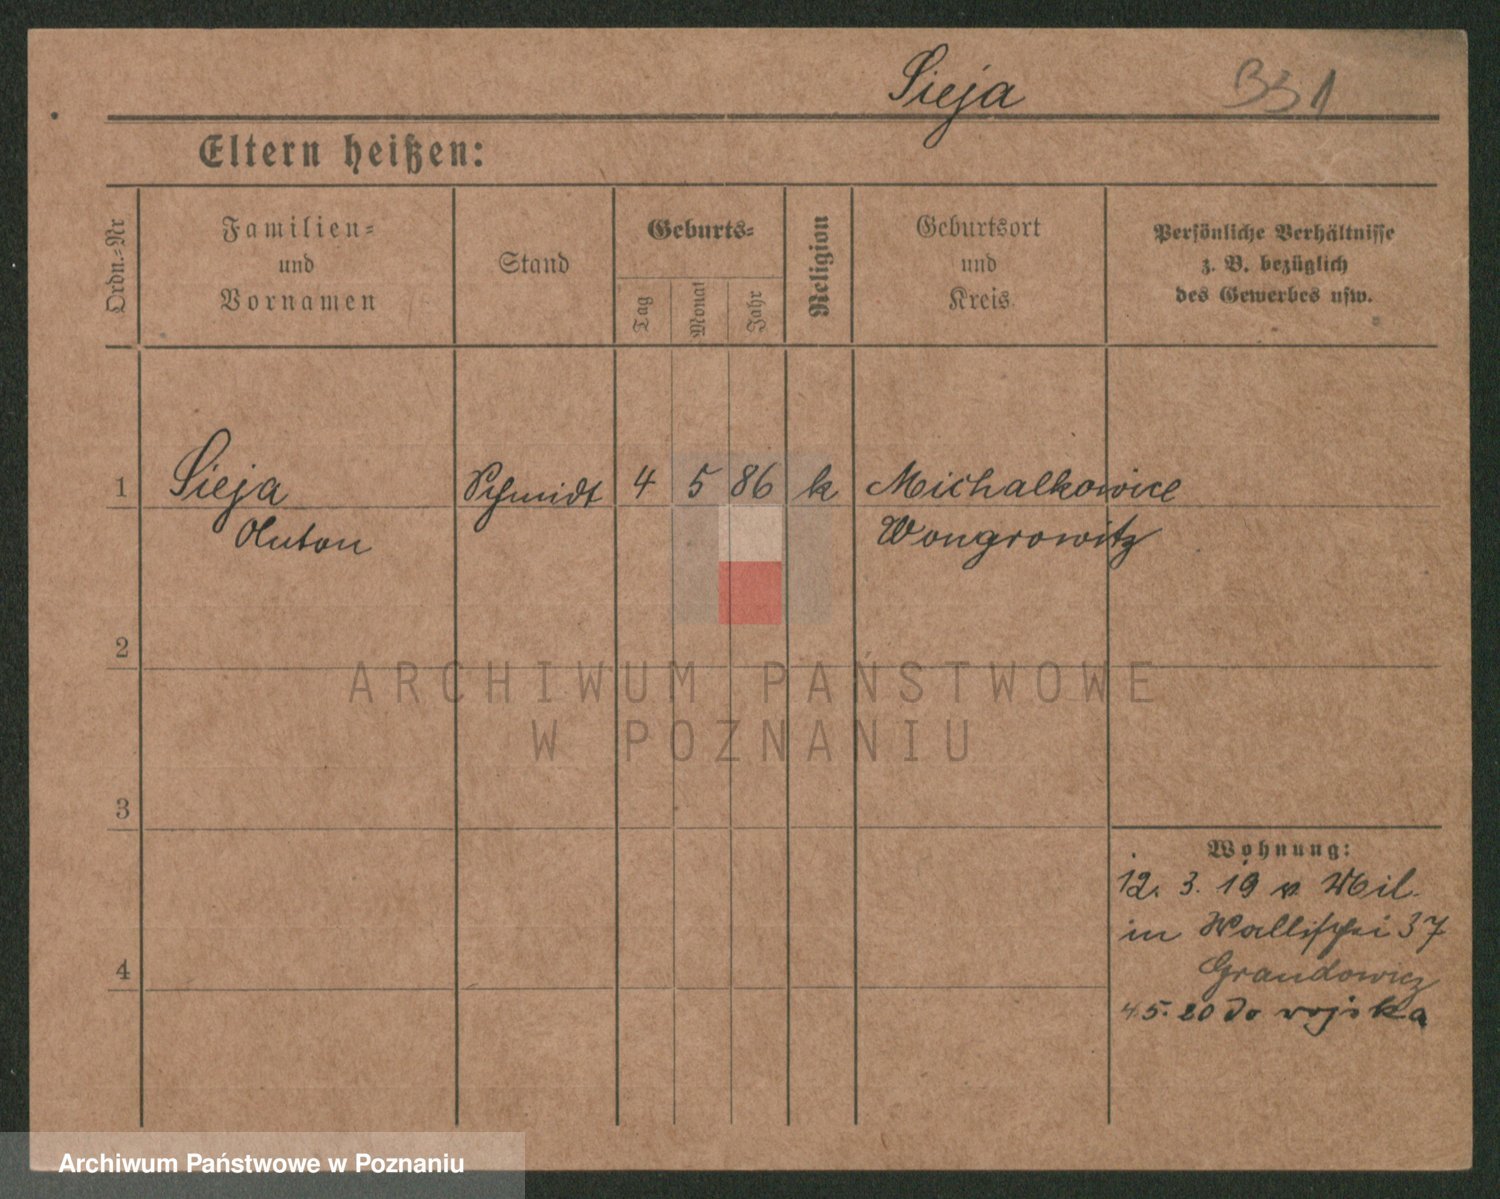 Sieja 331
Eltern heißen:
Ordn.-Nr
Familien-
und
Vornamen
Stand
Geburts-
Tag
Monat
Jahr
Religion
Geburtsort
und
Kreis
Persönliche Verhältnisse
z. B. bezüglich
des Gewerbes usw.
1 Sieja Schmidt 4 5 86 k Michalkowice
Anton Wongrowitz
2
ARCHIWUM PAŃSTWOWE
W POZNANIU
3
Wohnung:
12. 3. 19 v. Mil.
in Wallischei 37
Grandowicz
4
4.5.20 do wojska
Archiwum Państwowe w Poznaniu